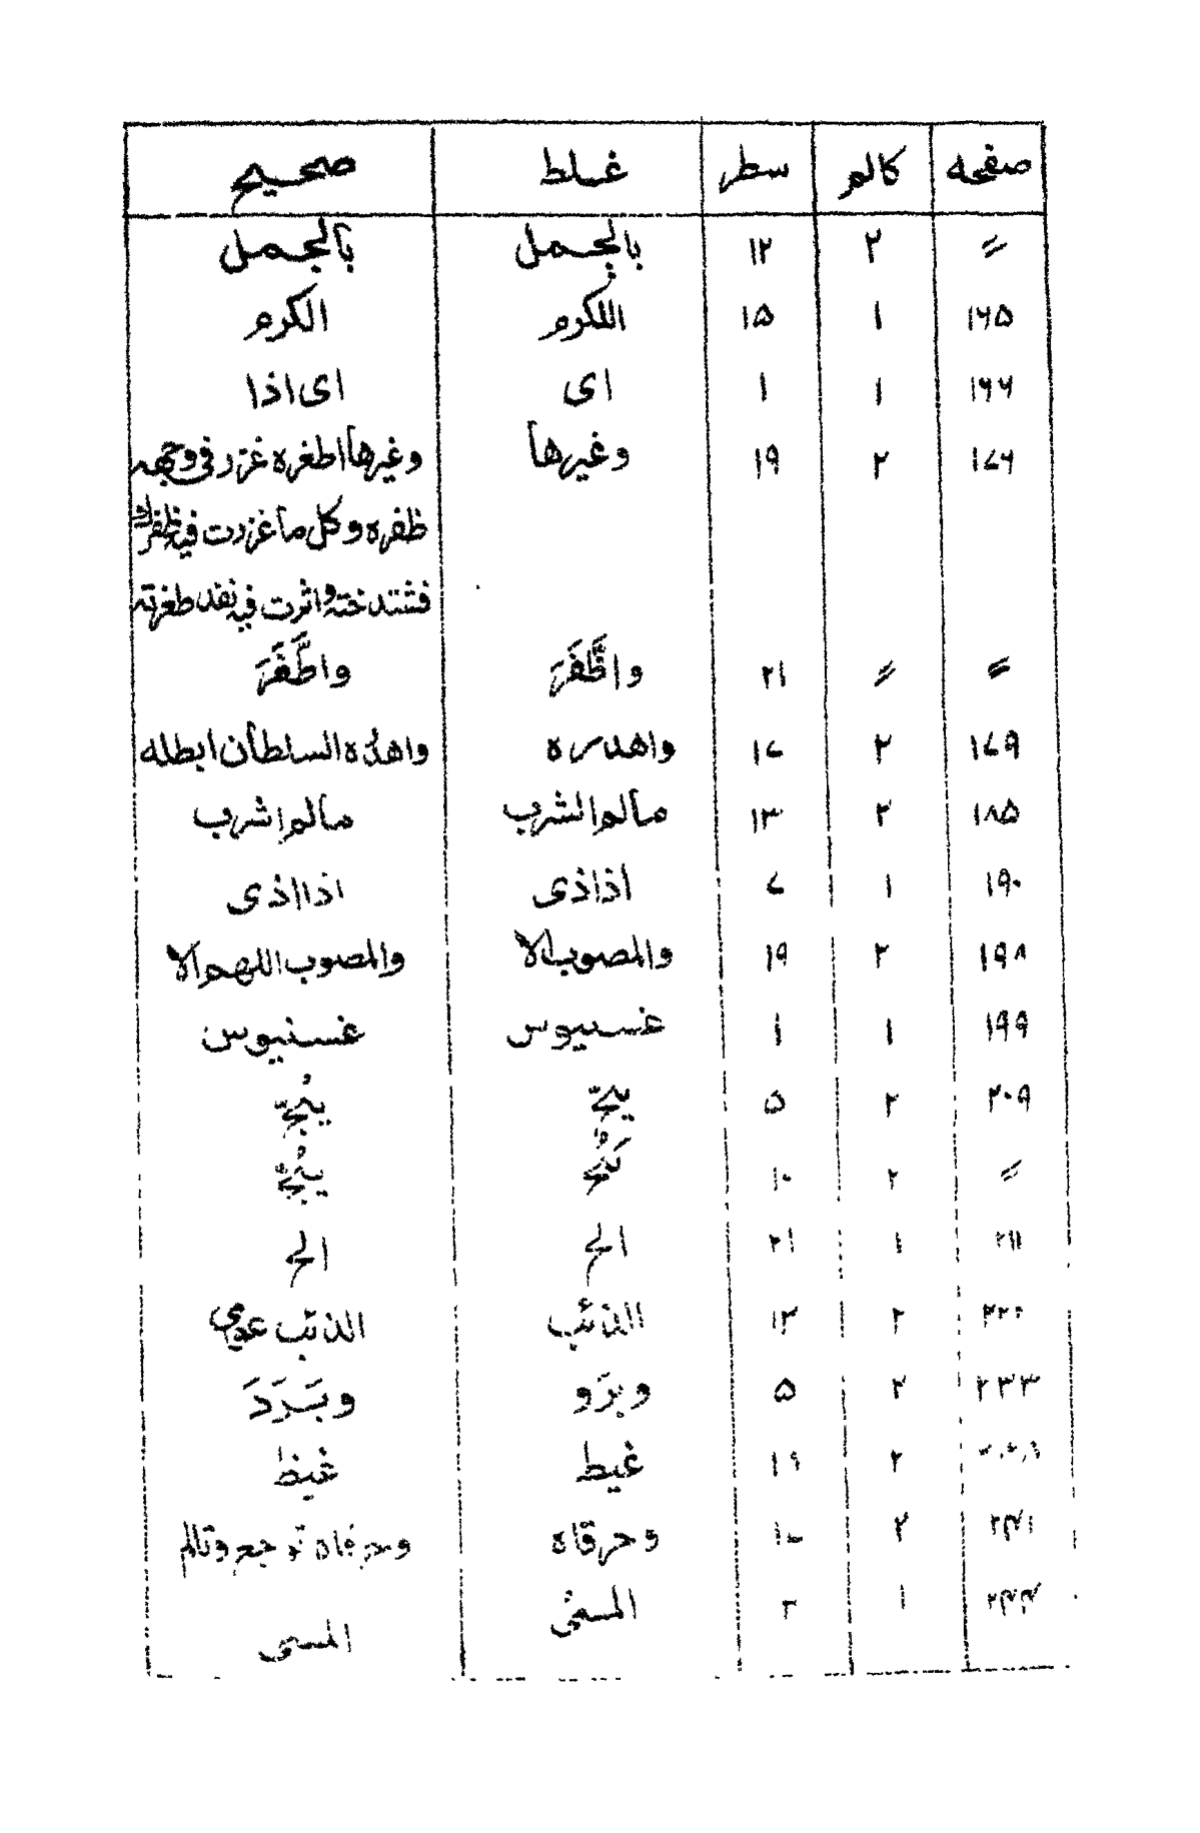 صفحه کالم سطر غلط صحیح
〃 ۲ ۱۲ بالجمل بالجمل
۱۶۵ ۱ ۱۵ اللکرم الکرم
۱۶۶ ۱ ۱ ای ای اذا
۱۷۶ ۲ ۱۹ وغیرها وغیرها اظفره غرز فی وجهه
ظفره وکل ما غرزت فیه ظفرك
فشتدخته واثرت فیه نقد طغرته
〃 〃 ۲۱ واظَّفَرَ واطَّفَرَ
۱۷۹ ۲ ۱۷ واهدره واهدُه السلطان ابطله
۱۸۵ ۲ ۱۳ مالم الشرب مالم اشرب
۱۹۰ ۱ ۷ اذاذی اذا اذی
۱۹۸ ۲ ۱۹ والمصوب الا والمصوب اللهم الا
۱۹۹ ۱ ۱ غسیوس غسنیوس
۲۰۹ ۲ ۵
〃 ۲ ۱۰
۲۱۱ ۱ ۲۱ الح الح
۲۲۰ ۲ ۱۳ الذئب الذئب عدیمی
۲۳۳ ۲ ۵ وبرَو وبَرَدَ
۲ ۱۹ غیط غیظ
۲۴۱ ۲ ۱۰ وحرقاه توجع وتالم
۲۴۴ ۱ ۳ المسئی المسمی